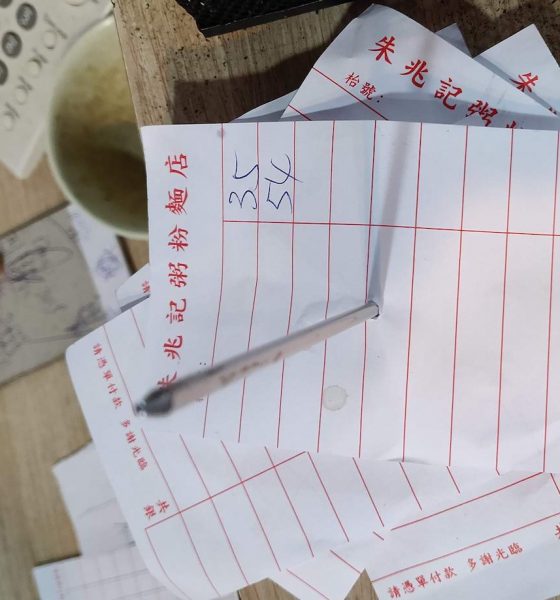 朱兆記粥粉麵店
35
54
朱兆記粥
枱號：
朱
請憑單付款 多謝光臨
共銀
請憑單付款 多謝光臨